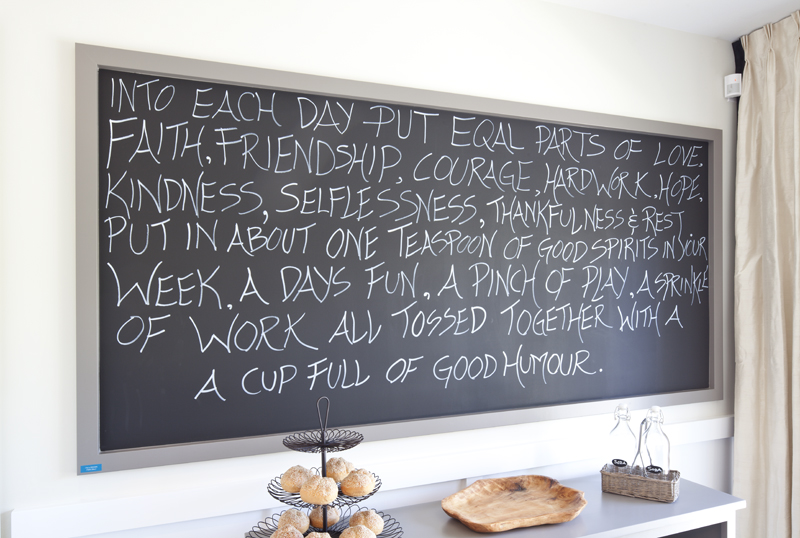 INTO EACH DAY PUT EQAL PARTS OF LOVE,
FAITH, FRIENDSHIP, COURAGE, HARDWORK, HOPE,
KINDNESS, SELFLESSNESS, THANKFULNESS & REST
PUT IN ABOUT ONE TEASPOON OF GOOD SPIRITS IN YOUR
WEEK, A DAYS FUN, A PINCH OF PLAY, A SPRINKLE
OF WORK ALL TOSSED TOGETHER WITH A
A CUP FULL OF GOOD HUMOUR.